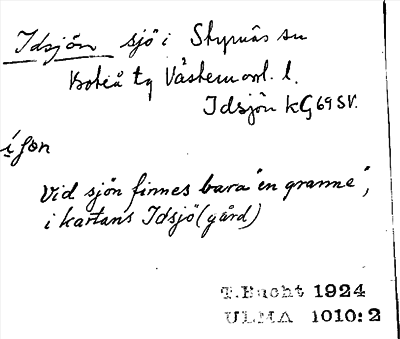 Idsjön sjö i Styrnäs sn
Boteå tg Västernorrl. l.
Idsjön KG 69 SV.
i̯ʃøn
Vid sjön finnes bara "en granne",
i kartans Idsjö (gård)
T.Bucht 1924
ULMA 1010:2